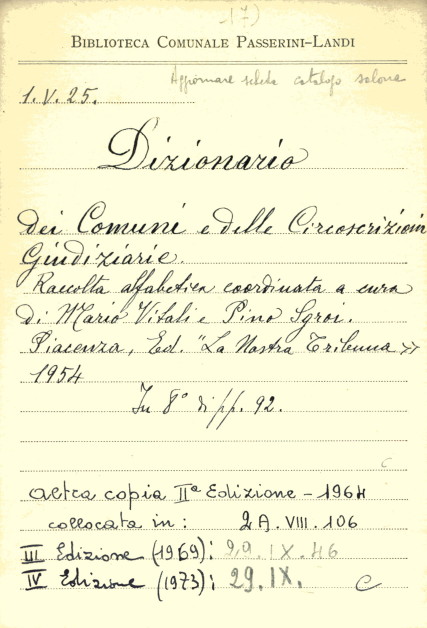 17)
BIBLIOTECA COMUNALE PASSERINI-LANDI
Aggiornare scheda catalogo salone
1.V.25.
Dizionario
dei Comuni e delle Circoscrizioni
Giudiziarie.
Raccolta alfabetica coordinata a cura
di Mario Vitali e Pino Sgroi.
Piacenza, Ed. "La Nostra Tribuna»
1954
In 8° di pp. 92.
c
altra copia IIa Edizione - 1964
collocata in: 2A. VIII. 106
III Edizione (1969): 29. IX. 46
IV Edizione (1973): 29. IX. C